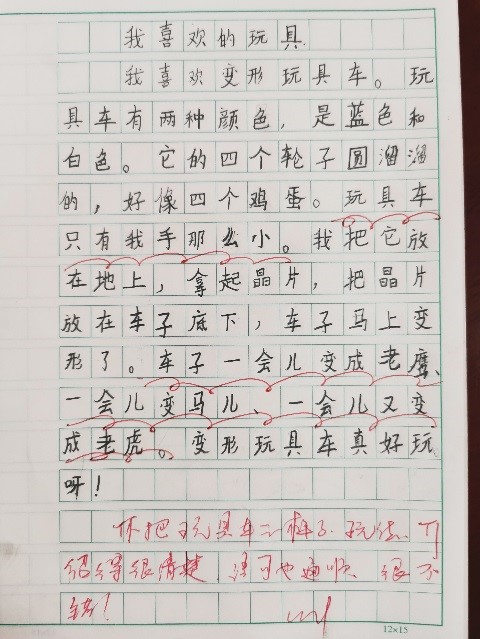 我喜欢的玩具
我喜欢变形玩具车。玩
具车有两种颜色，是蓝色和
白色。它的四个轮子圆溜溜
的，好像四个鸡蛋。玩具车
只有我手那么小。我把它放
在地上，拿起晶片，把晶片
放在车子底下，车子马上变
形了。车子一会儿变成老鹰、
一会儿变马儿、一会儿又变
成老虎。变形玩具车真好玩
呀！
你把玩具车的样子、玩法介
绍得很清楚，语句也通顺，很不
错！
12×15